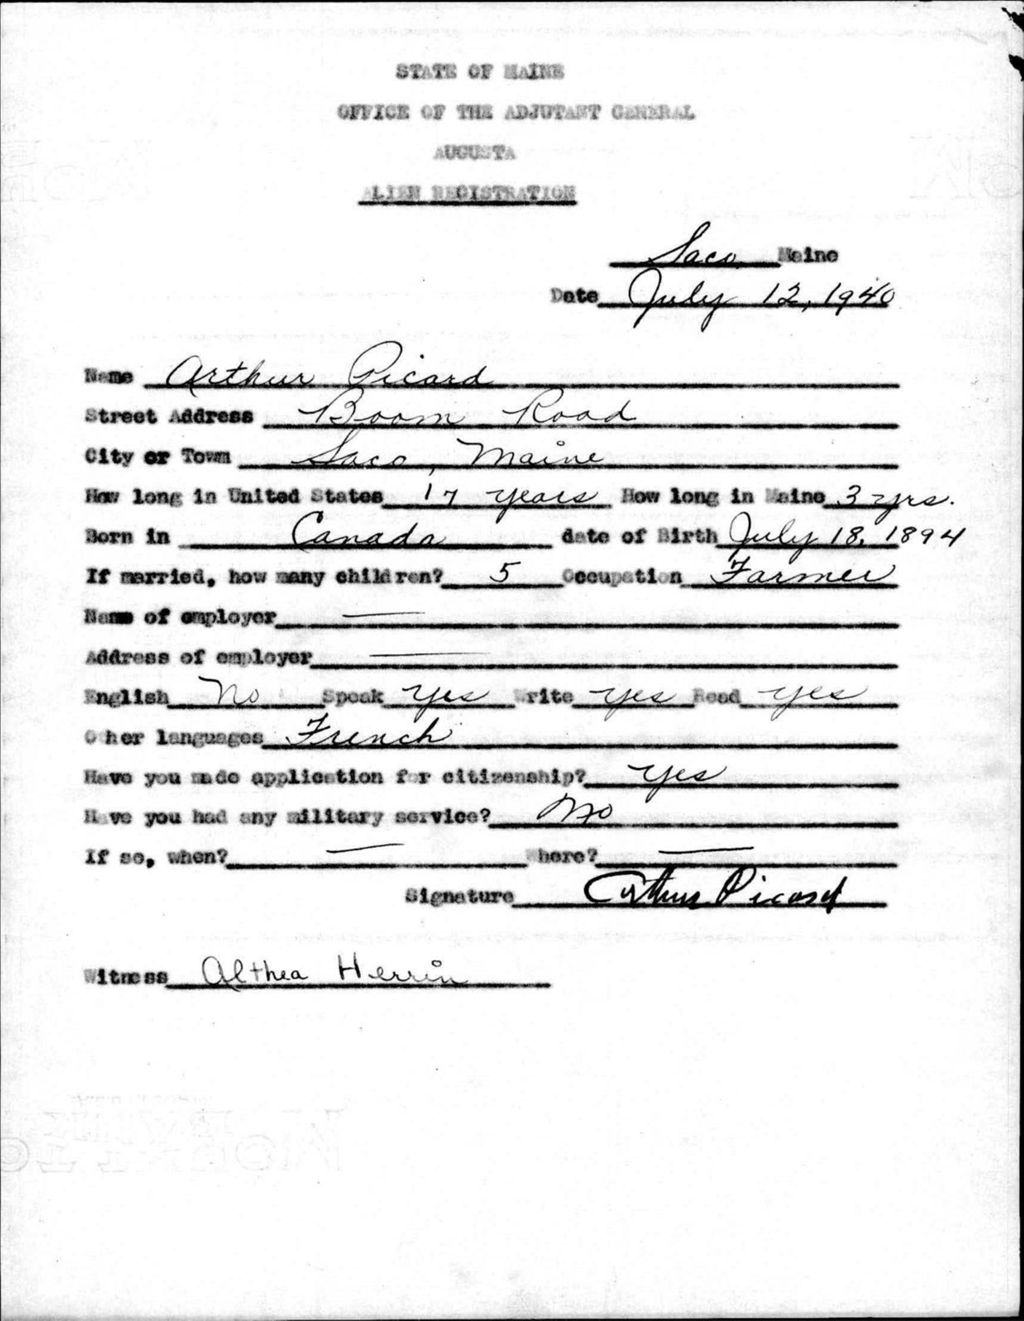 STATE OF MAINE
OFFICE OF THE ADJUTANT GENERAL
AUGUSTA
ALIEN REGISTRATION
Saco, Maine
Date July 12, 1940
Name Arthur Picard
Street Address Boom Road
City or Town Saco, Maine
How long in United States 17 years How long in Maine 3 yrs.
Born in Canada date of Birth July 18, 1894
If married, how many children? 5 Occupation Farmer
Name of employer —
Address of employer —
English No Speak yes Write yes Read yes
Other languages French
Have you made application for citizenship? yes
Have you had any military service? No
If so, when? — Where? —
Signature Arthur Picard
Witness Althea Herrin